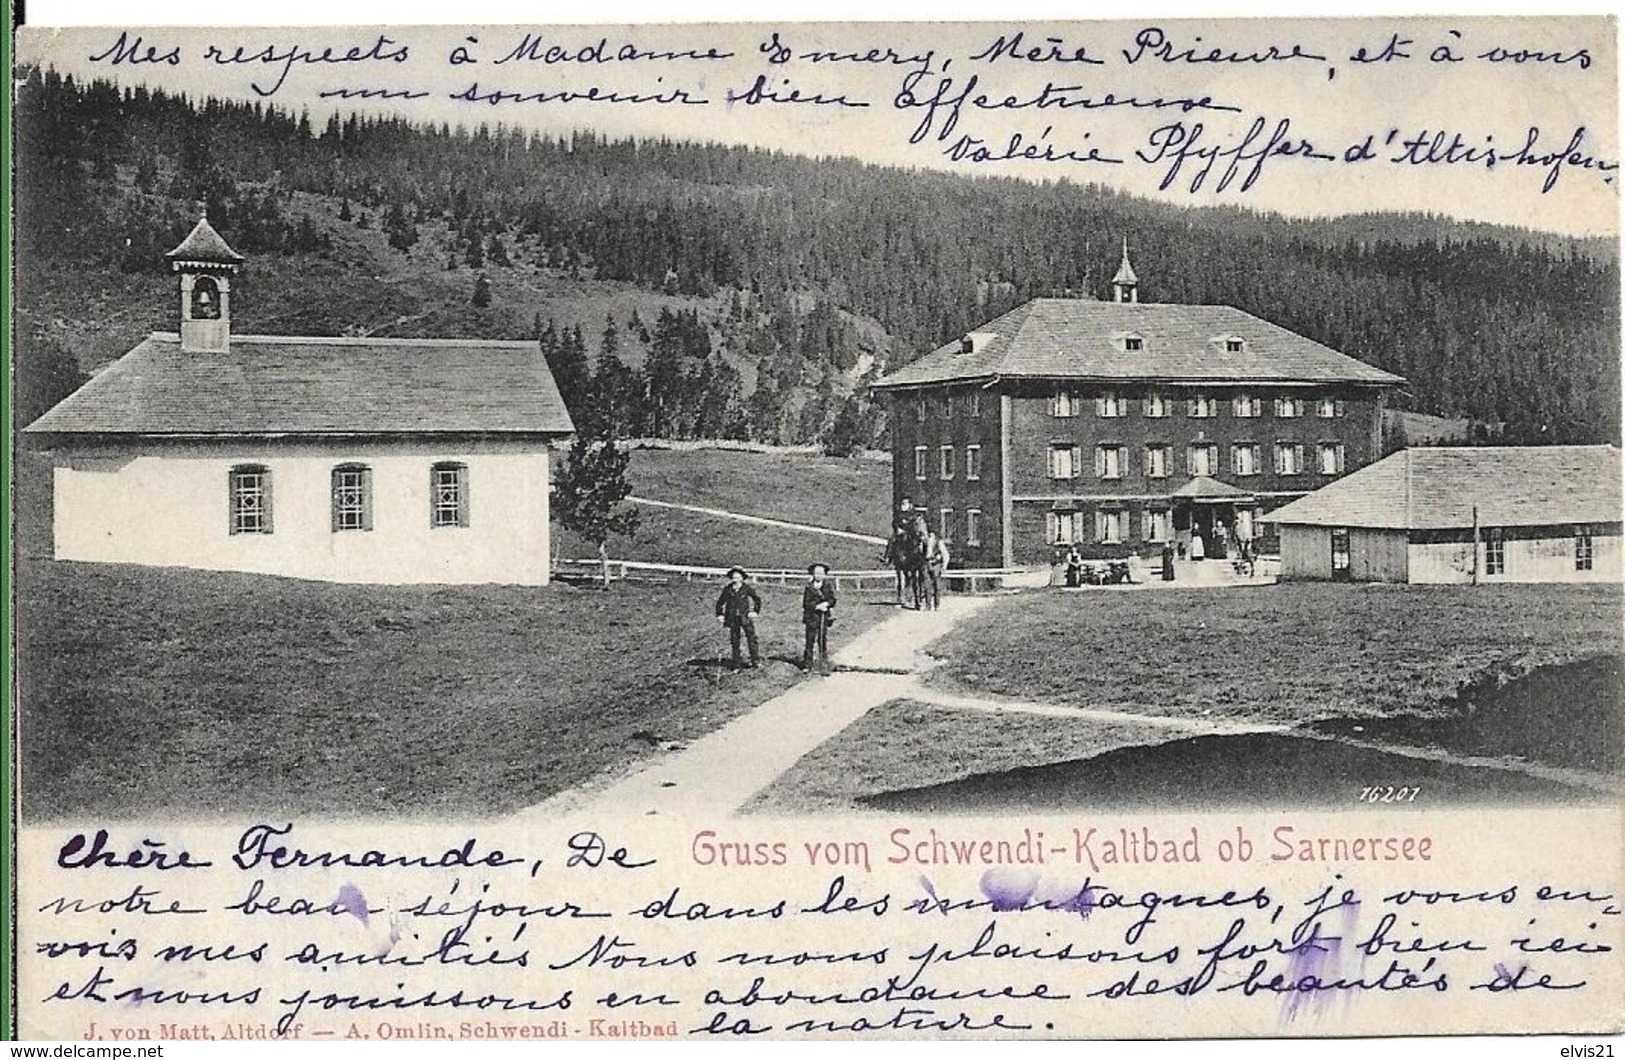 Mes respects à Madame Emery, Mère Prieure, et à vous
un souvenir bien affectueux
Valérie Pfyffer d'Altishofen.
16201
Chère Fernande, De
Gruss vom Schwendi-Kaltbad ob Sarnersee
notre beau séjour dans les montagnes, je vous en-
vois mes amitiés Nous nous plaisons fort bien ici
et nous jouissons en abondance des beautés de
la nature.
J. von Matt, Altdorf — A. Omlin, Schwendi - Kaltbad
delcampe.net
elvis21